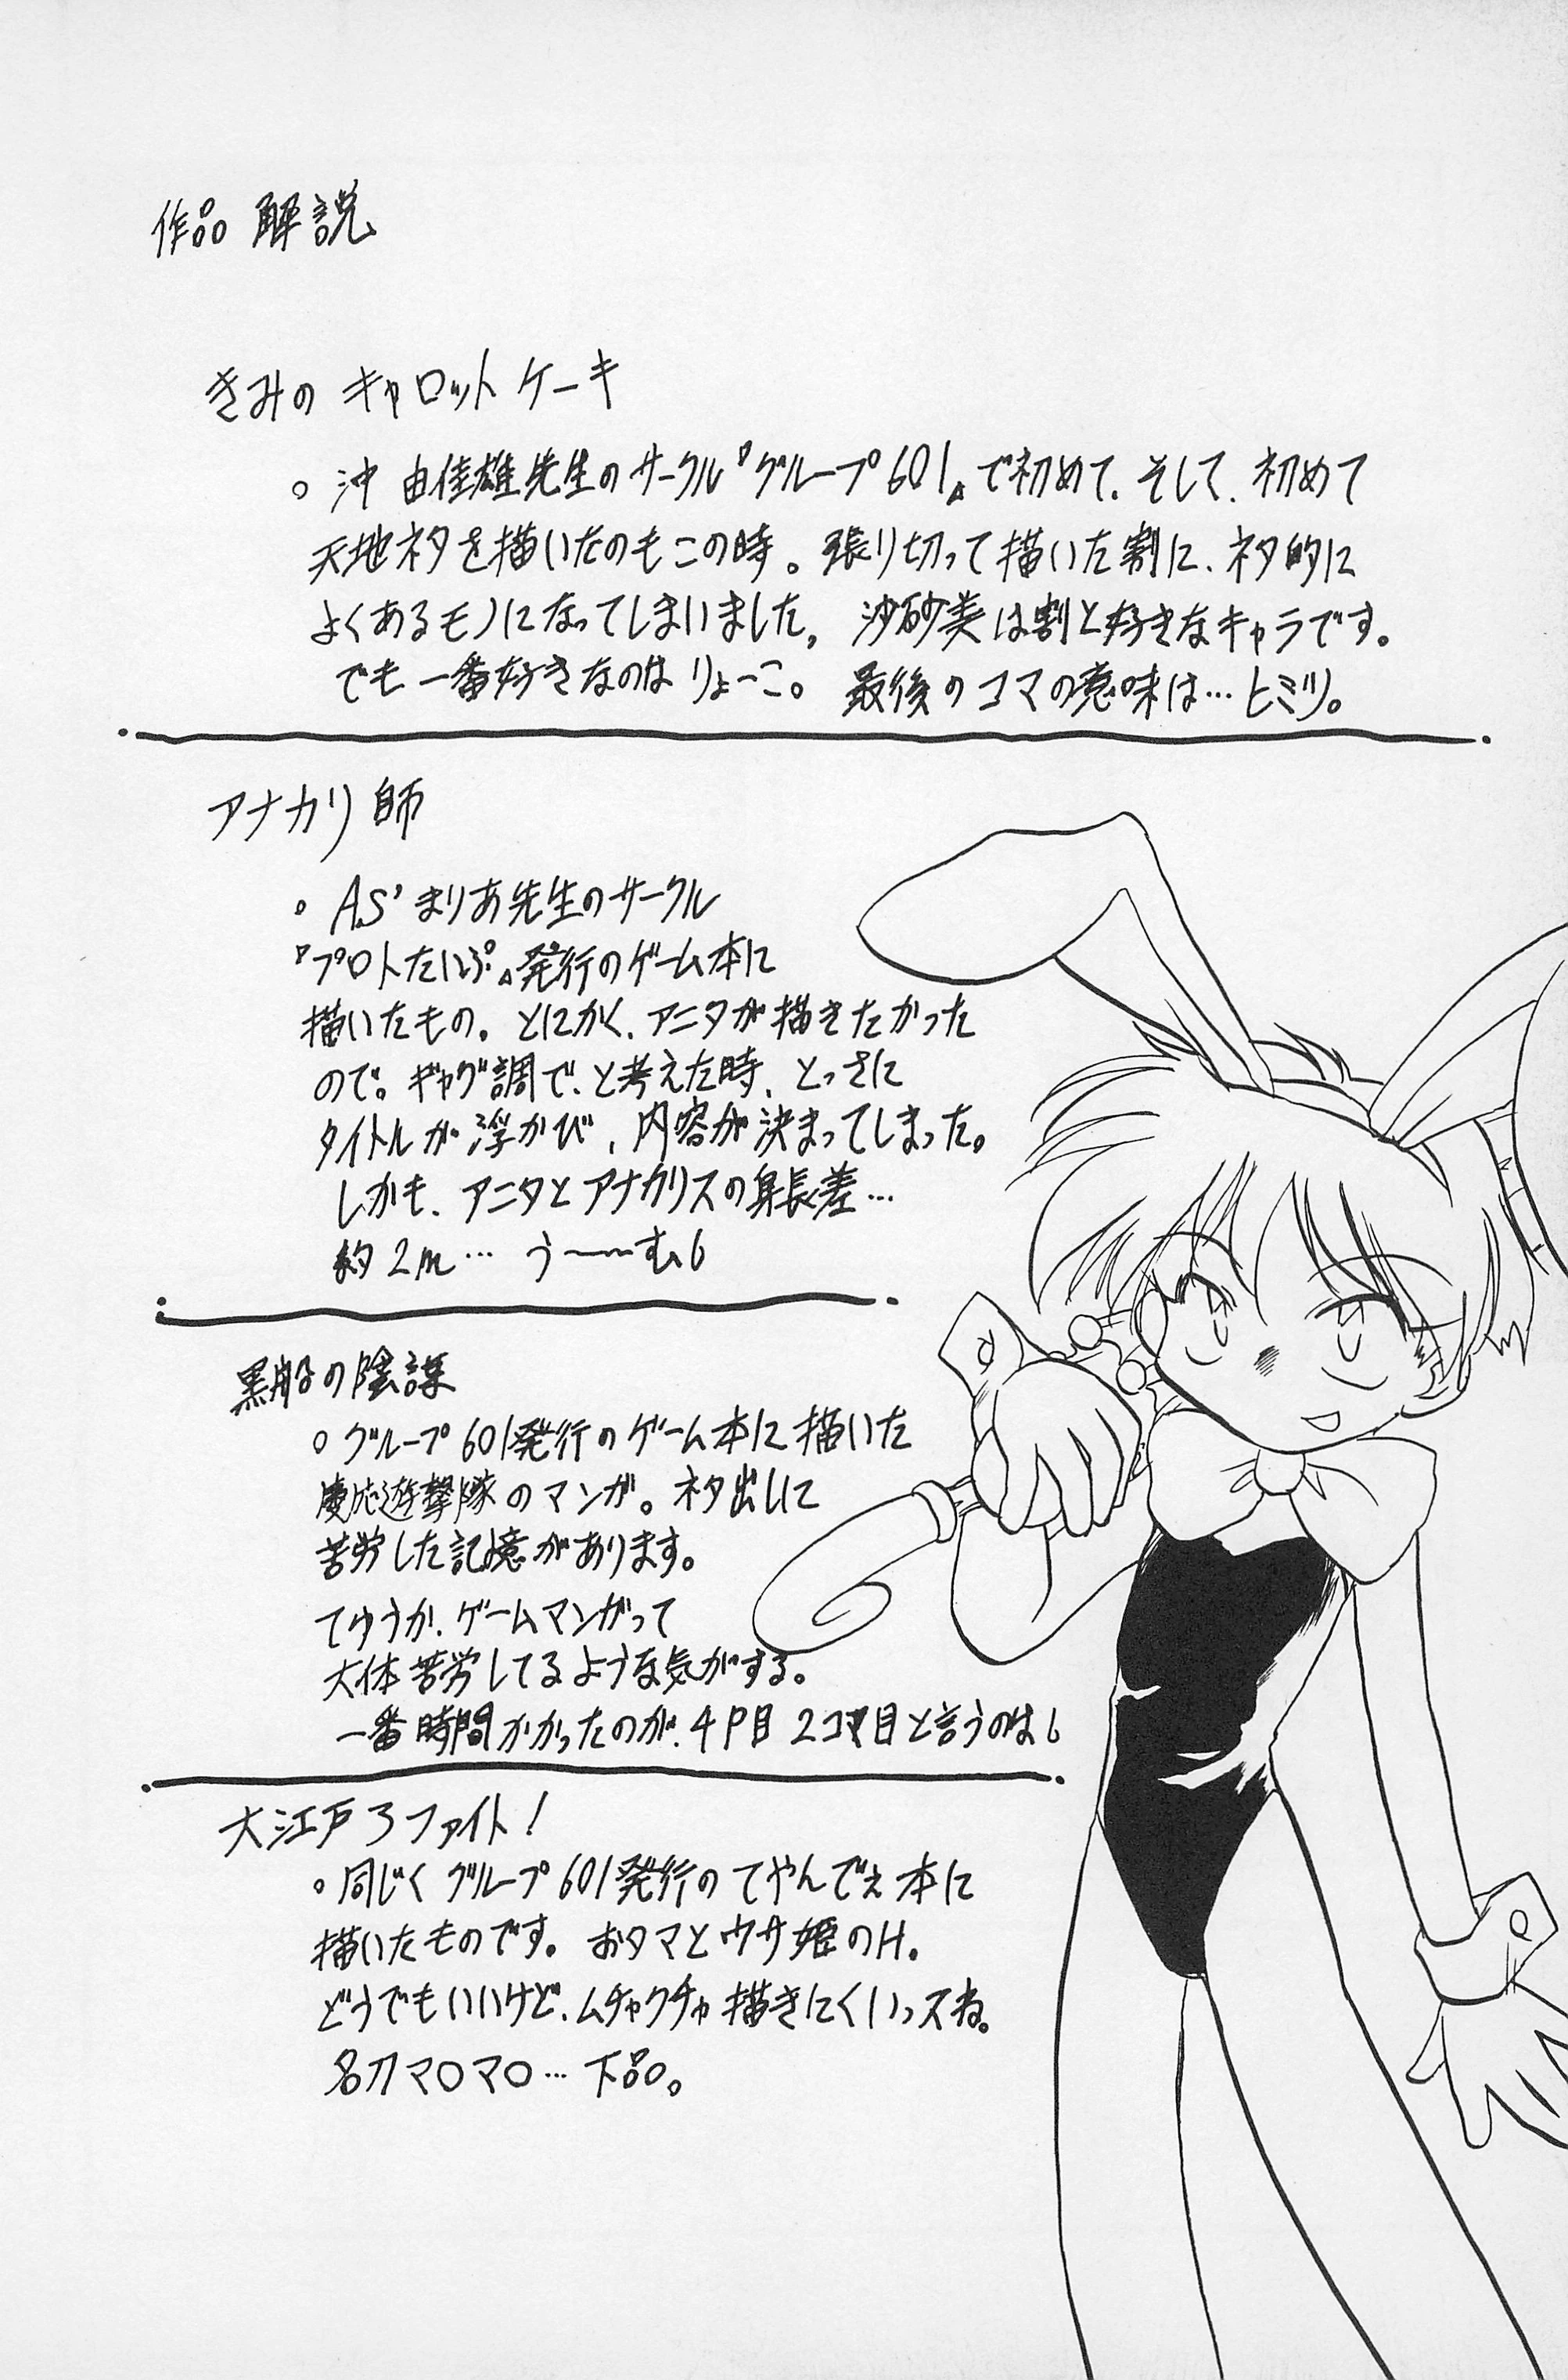 作品 解説
きみの キャロット ケーキ
○ 沖 由佳雄先生のサークル『グループ601』で初めて、そして、初めて
天地ネタを描いたのもこの時。張り切って描いた割に、ネタ的に
よくあるモノになってしまいました。 沙砂美は割と好きなキャラです。
でも一番好きなのは りょーこ。 最後のコマの意味は…ヒミツ。
アナカリ師
○ AS'まりあ先生のサークル
『プロトたいぷ』発行のゲーム本に
描いたもの。とにかく、アニタが描きたかった
ので。ギャグ調で、と考えた時、とっさに
タイトルが浮かび、内容が決まってしまった。
しかも、アニタとアナカリスの身長差…
約2m… う〜〜む
黒船の陰謀
○グループ601発行のゲーム本に描いた
慶応遊撃隊のマンガ。ネタ出しに
苦労した記憶があります。
てゆうか、ゲームマンガって
大体苦労してるような気がする。
一番時間かかったのが、4P目2コマ目と言うのは
大江戸ろファイト!
○同じくグループ601発行のてやんでえ本に
描いたものです。おタマとウサ姫のH。
どうでもいいけど、ムチャクチャ描きにくいっスね。
名刀マ○マ○…下品。